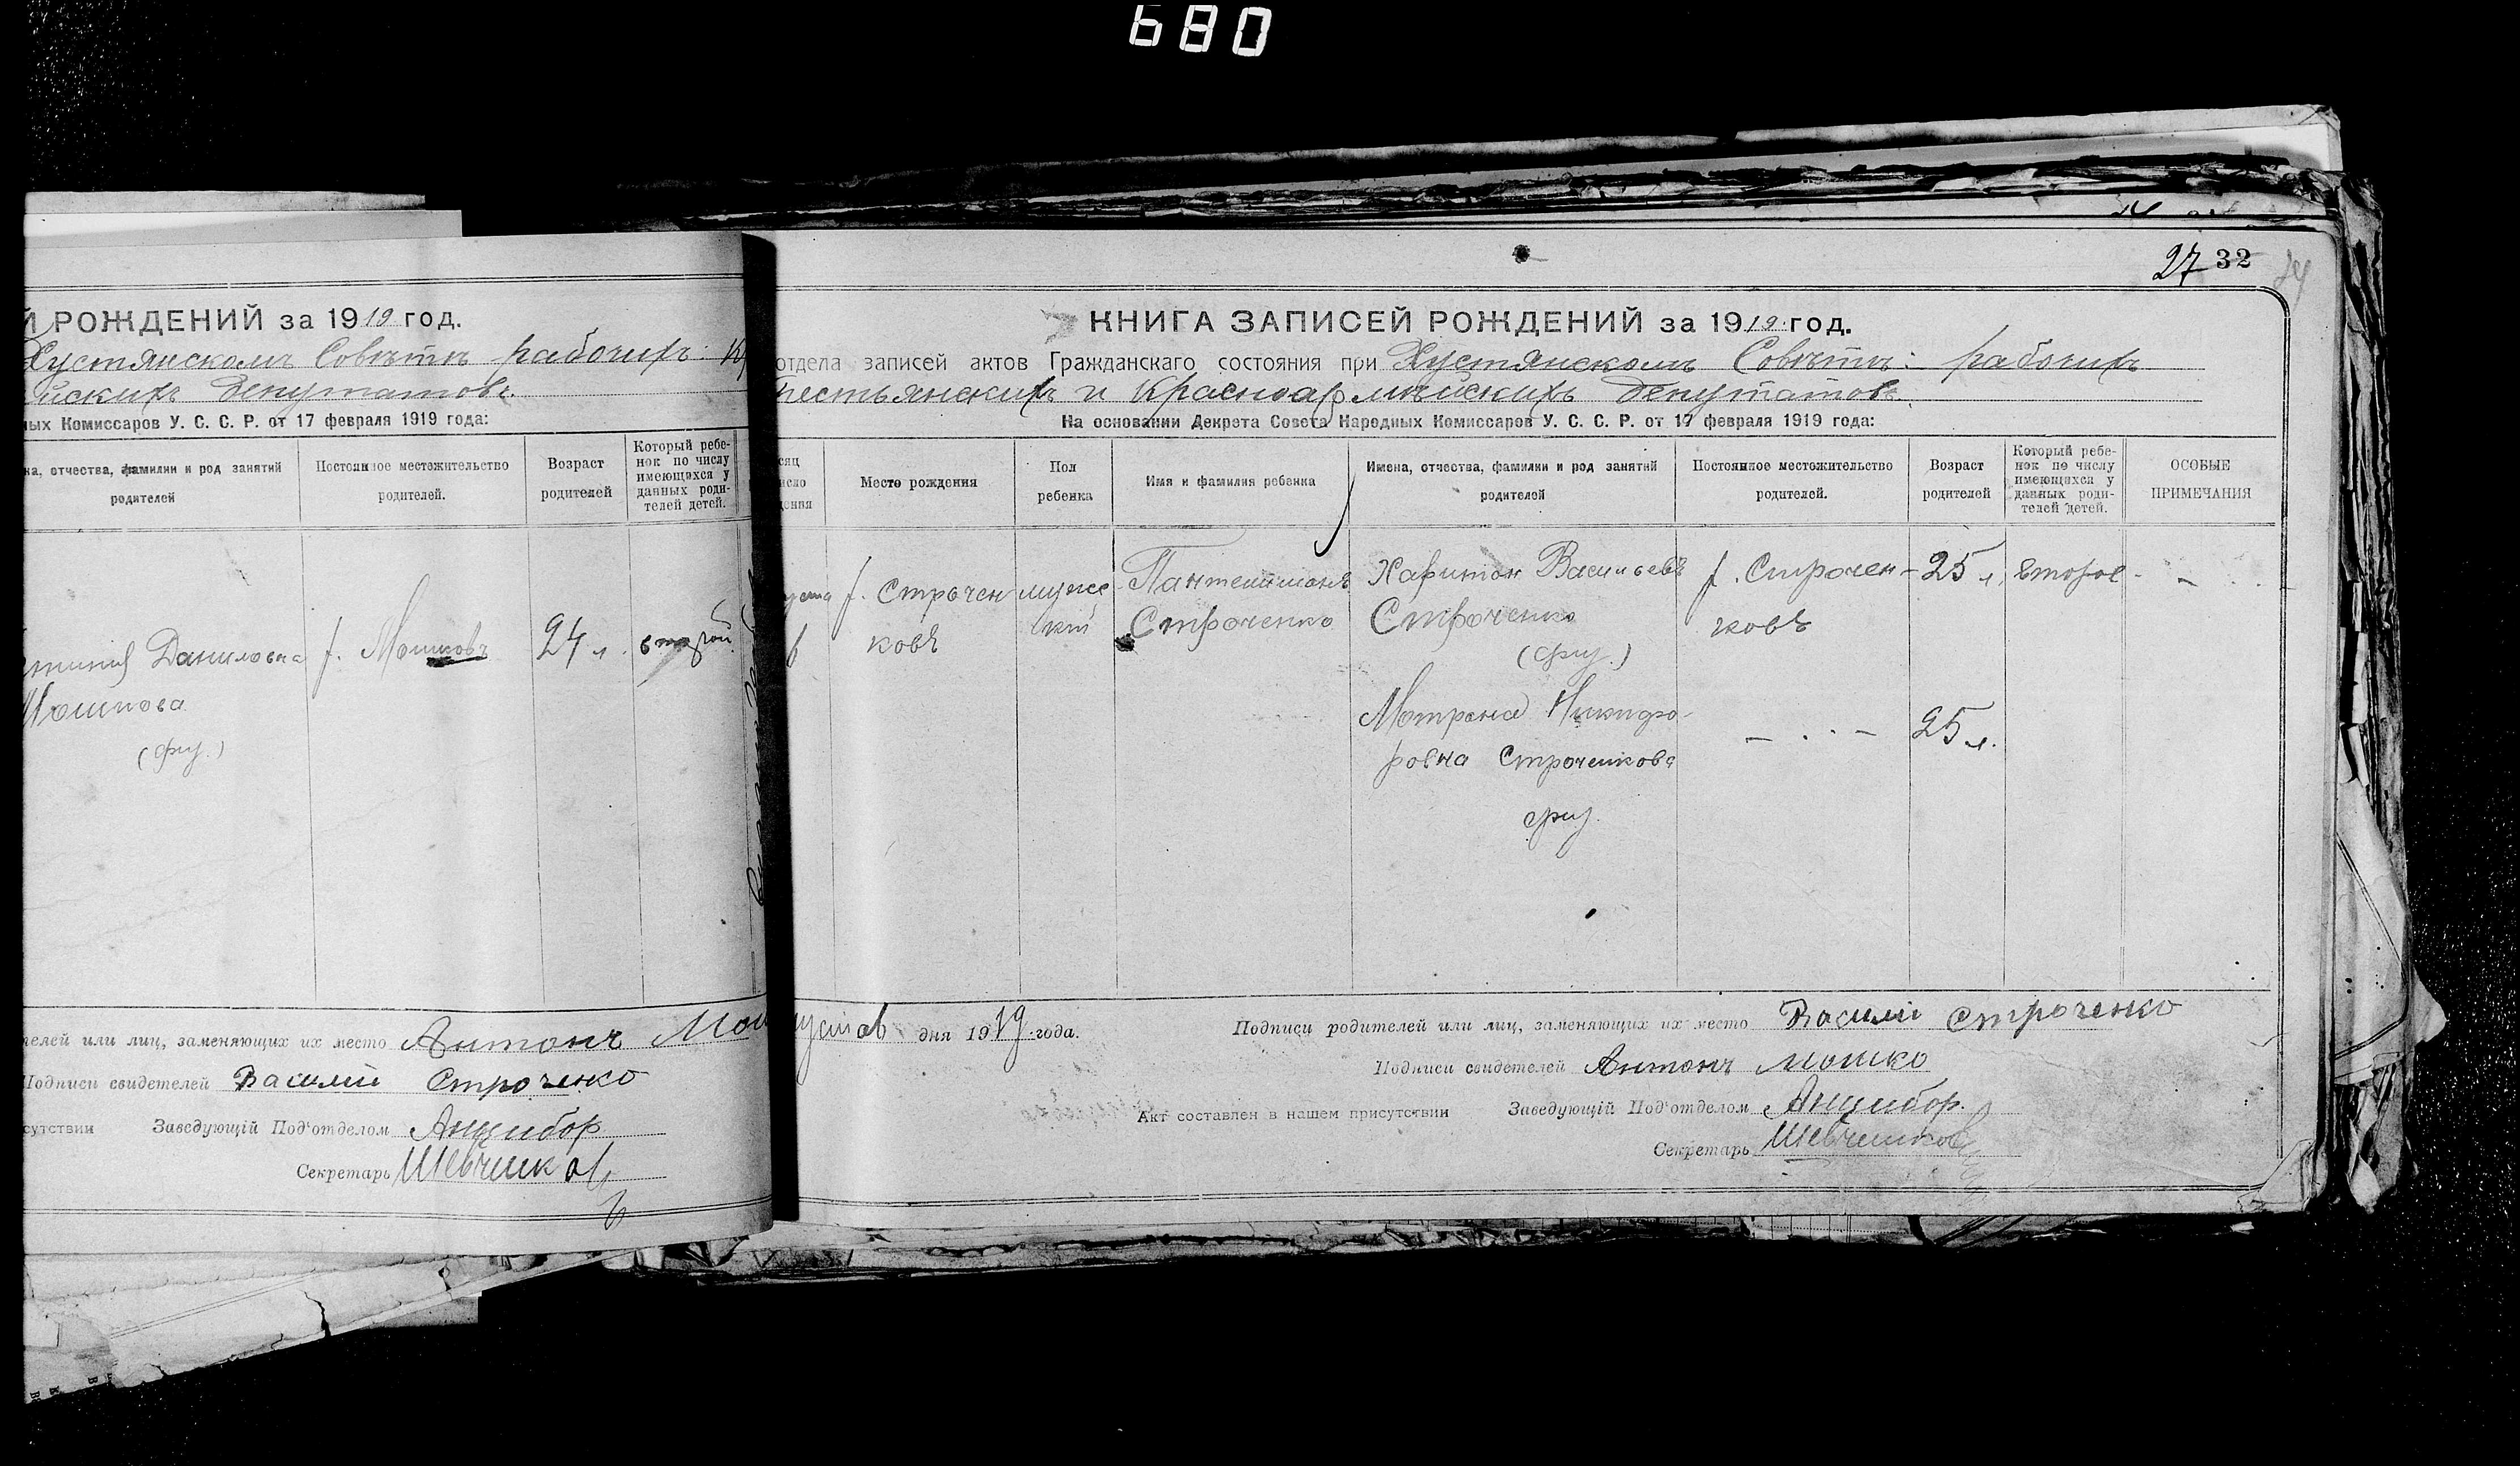 680
Й РОЖДЕНИЙ за 1919 год.
Хустянскомъ Совѣтѣ рабочихъ
йскихъ депутатовъ.
ных Комиссаров У. С. С. Р. от 17 февраля 1919 года:
на, отчества, фамилии и род занятий родителей
Постоянное местожительство родителей.
Возраст родителей
Который ребе-
нок по числу
имеющихся у
данных роди-
телей детей.
Даниловна
х. Мошковъ
24 л.
второй
Мошкова
телей или лиц, заменяющих их место Антонъ
Подписи свидетелей Василій Строченко
сутствии Заведующій Под'отделом Анцибор
Секретарь
27 32 24
КНИГА ЗАПИСЕЙ РОЖДЕНИЙ за 1919 год.
отдела записей актов Гражданскаго состояния при Хустянскомъ Совѣтѣ: рабочихъ
рестьянскихъ и Красноармѣйскихъ депутатовъ.
На основании Декрета Совета Народных Комиссаров У. С. С. Р. от 17 февраля 1919 года:
Место рождения
Пол ребенка
Имя и фамилия ребенка
Имена, отчества, фамилии и род занятий родителей
Постоянное местожительство родителей.
Возраст родителей
Который ребе-
нок по числу
имеющихся у
данных роди-
телей детей.
ОСОБЫЕ ПРИМЕЧАНИЯ
х. Строчен
ковъ
мужс
кій
Пантелимонъ
Строченко
Харитон Васильевъ
Строченко
Мотрона Никифо-
ровна Строченкова
х. Строчен-
ковъ
25 л.
25 л.
второе
дня 1919 года.
Подписи родителей или лиц, заменяющих их место Василій Строченко
Подписи свидетелей Антонъ Мошко
Акт составлен в нашем присутствии Заведующій Под'отделом Анцибор.
Секретарь